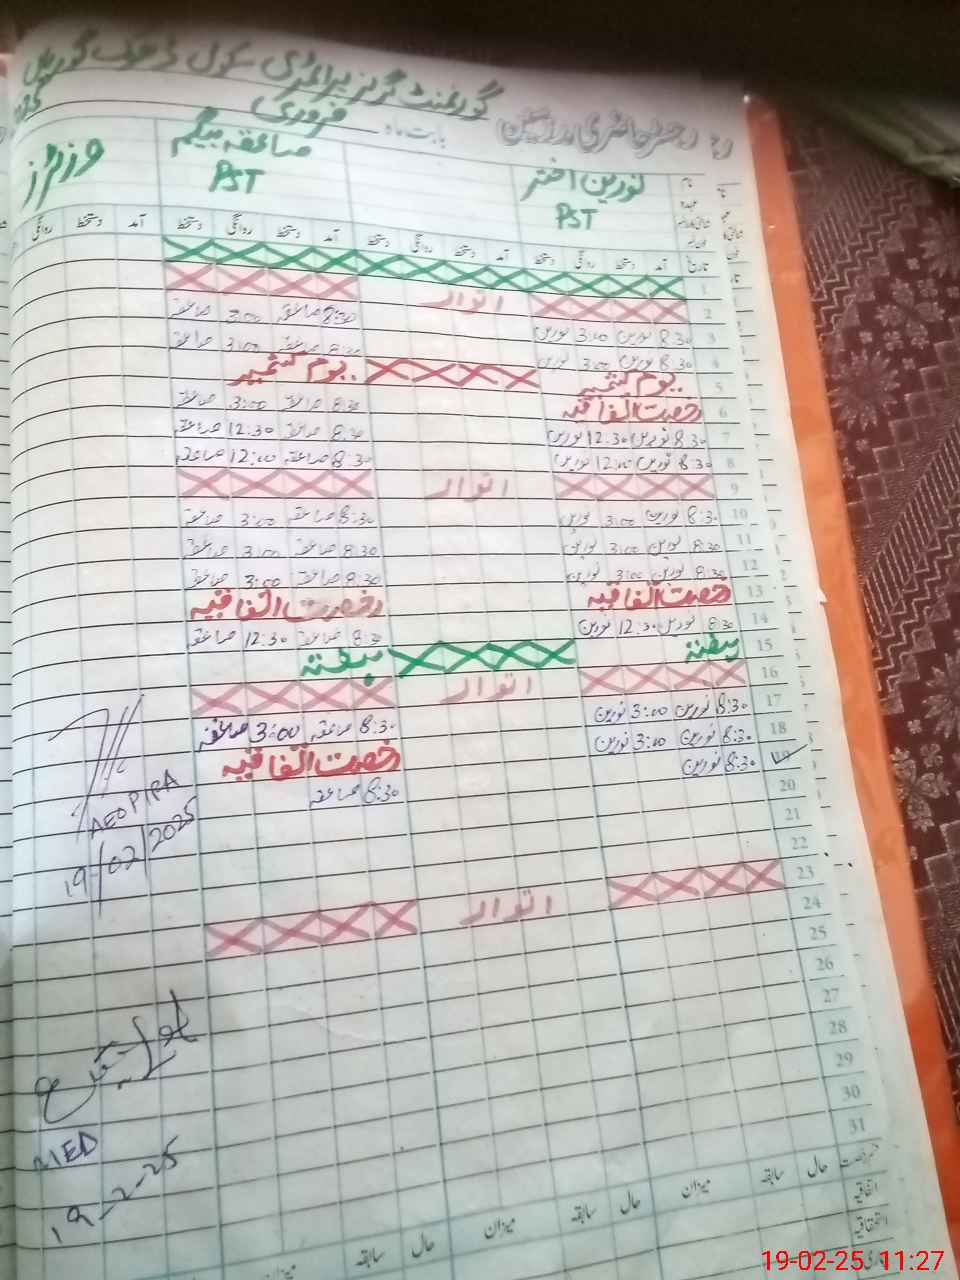 گورنمنٹ گرلز پرائمری سکول ڈھوک گوریاں
رجسٹر حاضری مدرسین بابت ماہ فروری
نورین اختر صاعقہ بیگم وزٹرز
PST PST
نام
عہدہ
تاریخ آمد دستخط روانگی دستخط آمد دستخط روانگی دستخط آمد دستخط روانگی دستخط آمد دستخط روانگی
1
2 اتوار
3 8:30 نورین 3:00 نورین 8:30 صاعقہ 3:00 صاعقہ
4 8:30 نورین 3:00 نورین 8:30 صاعقہ 3:00 صاعقہ
5 یوم کشمیر یوم کشمیر
6 رخصت اتفاقیہ 8:30 صاعقہ 3:00 صاعقہ
7 8:30 نورین 12:30 نورین 8:30 صاعقہ 12:30 صاعقہ
8 8:30 نورین 12:00 نورین 8:30 صاعقہ 12:00 صاعقہ
9 اتوار
10 8:30 نورین 3:00 نورین 8:30 صاعقہ 3:00 صاعقہ
11 8:30 نورین 3:00 نورین 8:30 صاعقہ 3:00 صاعقہ
12 8:30 نورین 3:00 نورین 8:30 صاعقہ 3:00 صاعقہ
13 رخصت اتفاقیہ رخصت اتفاقیہ
14 8:30 نورین 12:30 نورین 8:30 صاعقہ 12:30 صاعقہ
15 ہفتہ ہفتہ
16 اتوار
17 8:30 نورین 3:00 نورین 8:30 صاعقہ 3:00 صاعقہ
18 8:30 نورین 3:00 نورین رخصت اتفاقیہ
19 8:30 نورین 8:30 صاعقہ
20
21
22
23 اتوار
24
25
26
27
28
29
30
31
AEO PIRA
19/02/2025
MED
19-2-25
رخصت حال سابقہ میزان حال سابقہ میزان حال سابقہ میزان
اتفاقیہ
استحقاقیہ
19-02-25 11:27